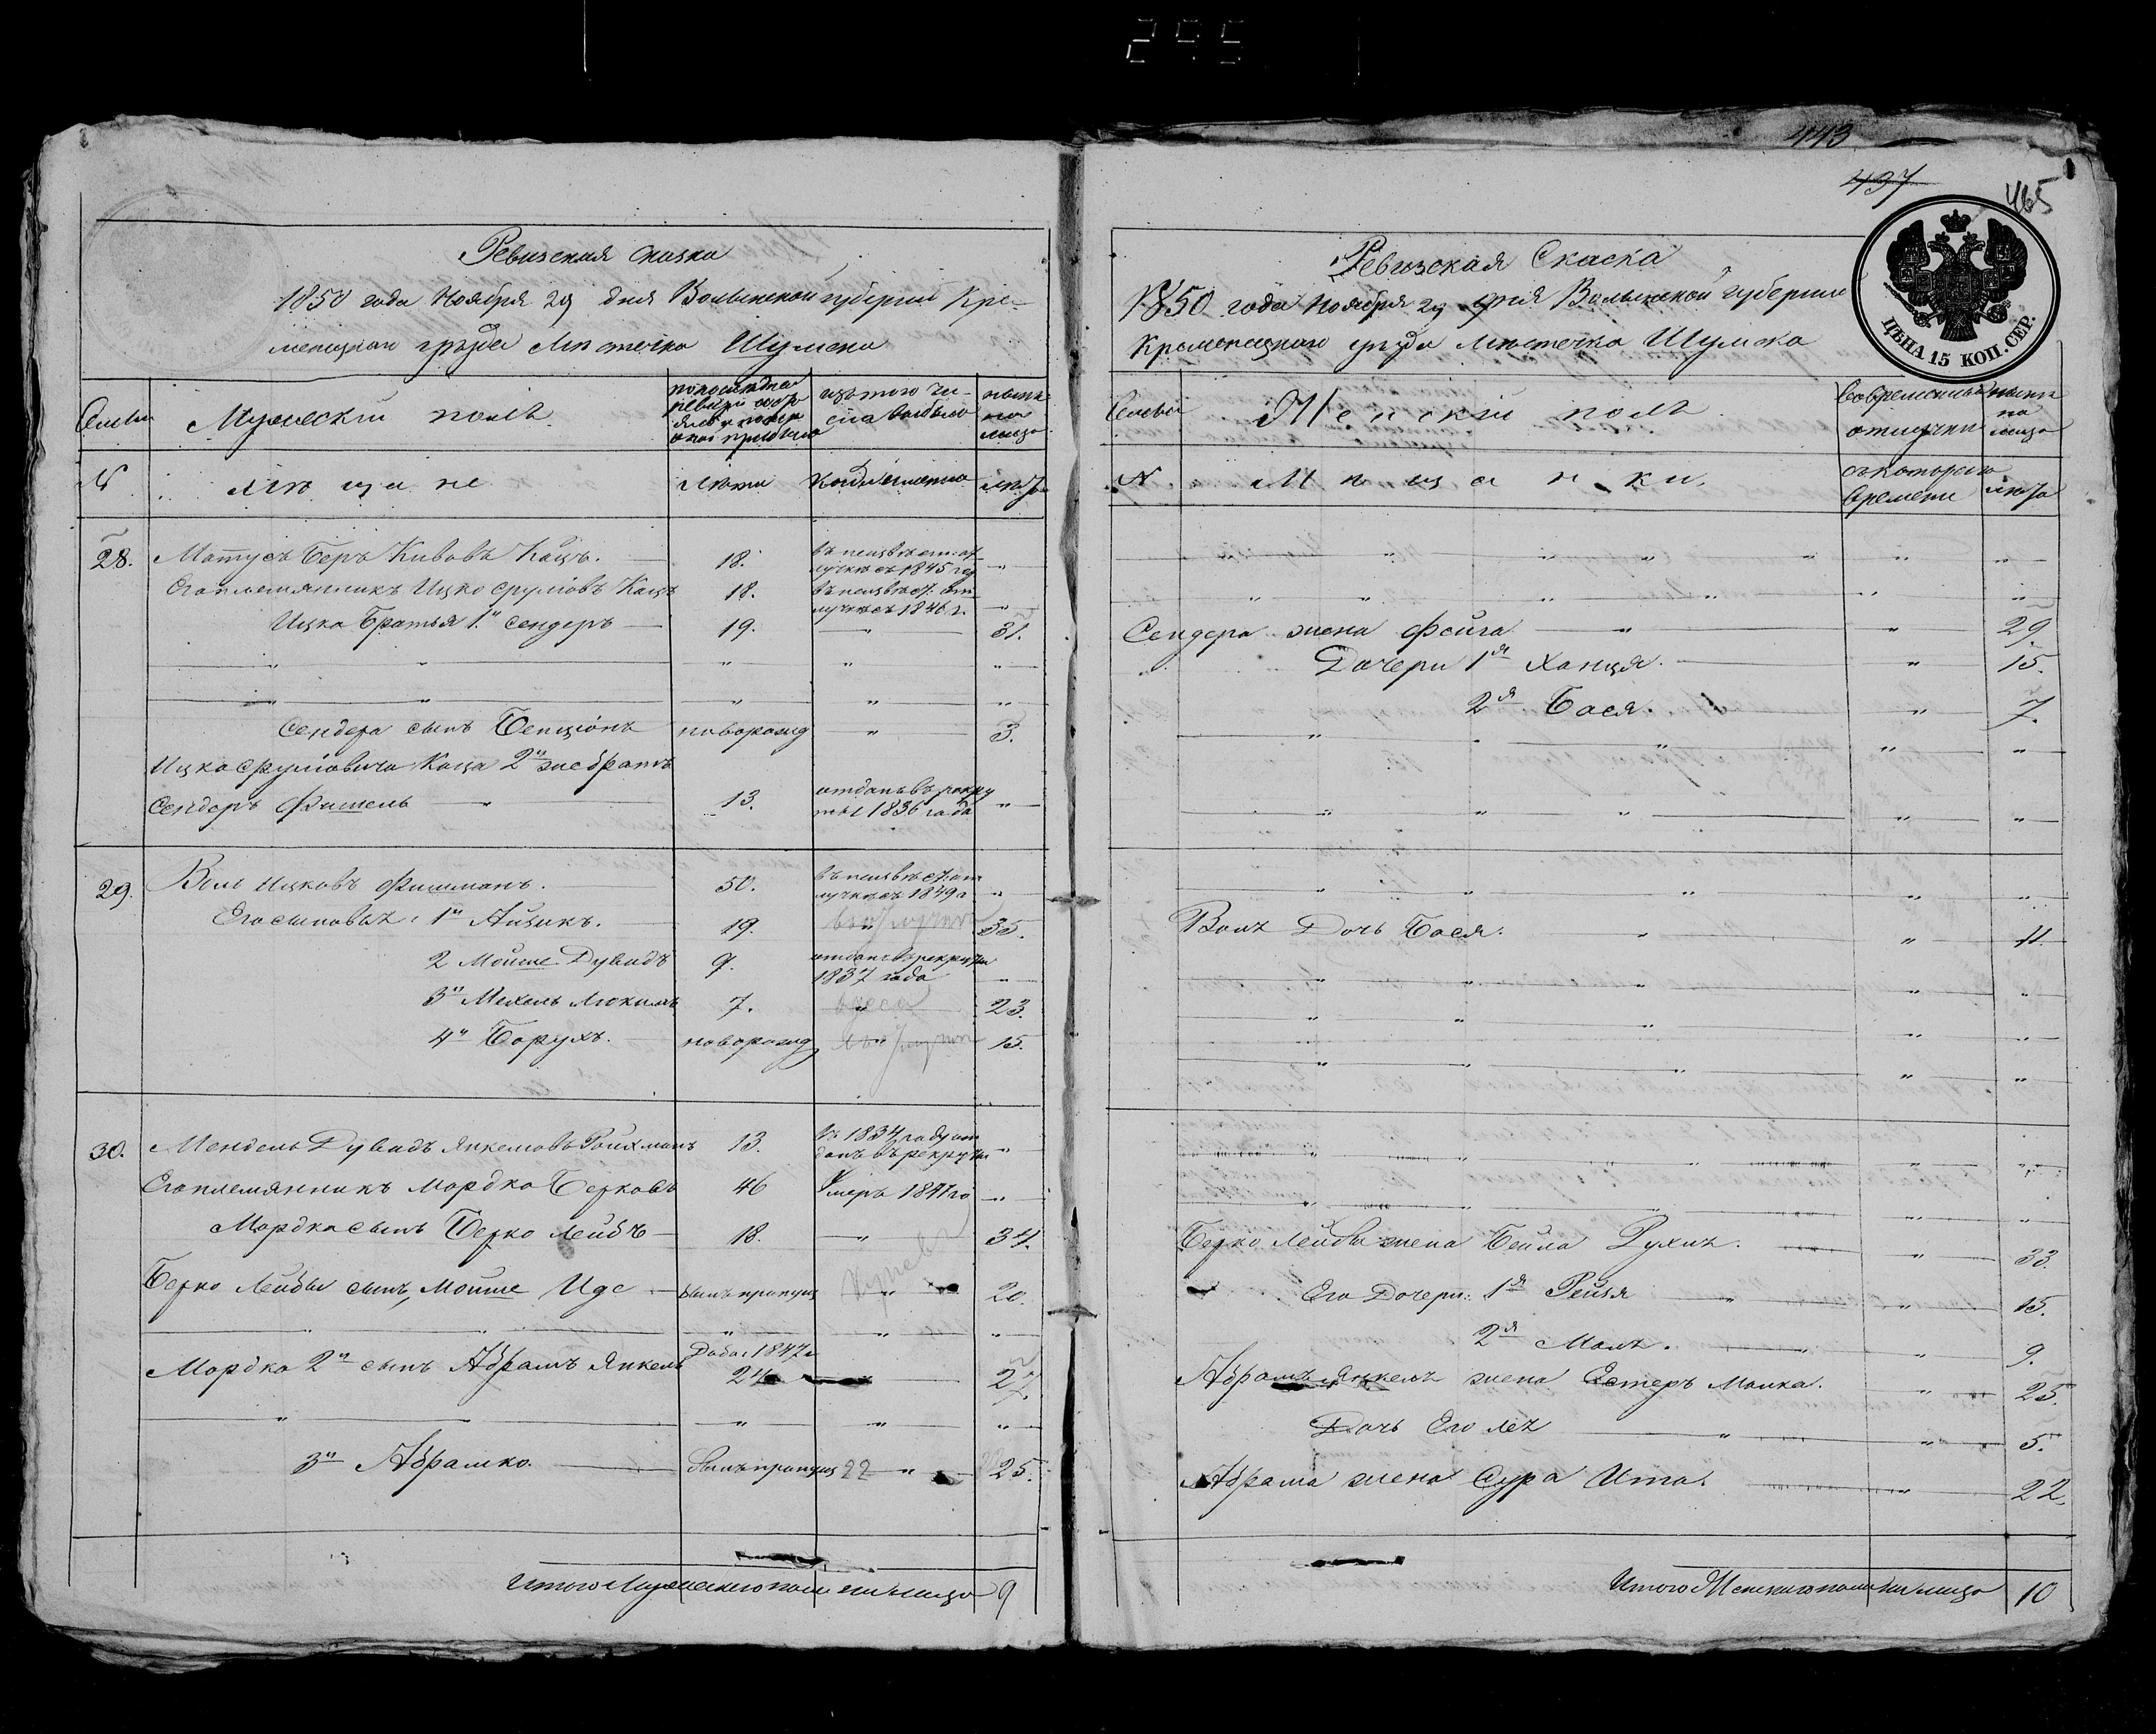 295
443
437
465
ЦѢНА 15 КОП. СЕР.
Ревизская сказка
1850 года Ноября 29 дня Волынской губернии Кре-
менецкаго уѣзда Мѣстечка Шумска
Семьи
Мужескій полъ.
по последней ревизіи состояло и после оной прибыло
изъ того числа выбыло
ныне на лицо
N
Мѣщане
Лѣта
Когда именно
лѣта
28. Матусъ Беръ Кивовъ Кацъ. 18. въ неизвѣст: отлучкѣ съ 1845 год „
Его племянникъ Ицко Срулiовъ Кацъ 18. въ неизвѣст: отлучкѣ съ 1846 г. „
Ицка Братья 1й Сендеръ 19. „ 31.
Сендера сынъ Бенціонъ новорожд „ 3.
Ицка Сруліовича Каца 2й же братъ
Сендеръ Фишель 13. отданъ въ рекруты 1836 года „
29. Вольѣ Ицковъ Фишманъ. 50. въ неизвѣст: отлучкѣ съ 1849 г „
Его сыновья: 1й Айзикъ. 19. „ 35.
2 Мойше Дувидъ 9. отданъ в рекруты 1837 года „
3й Мехель 7. „ 23.
4й Борухъ. новорожд „ 15.
30. Мендель Дувидъ Янкелiовъ Ройхманъ 13. въ 1834 году отданъ въ рекруты „
Его племянникъ Мордко Берковъ 46 Умеръ 1847 го „
Мордка сынъ Берко Лейбъ 18. „ 34.
Берко Лейбы сынъ, Мойше Иде былъ пропущ „ 20.
Мордка 2й сынъ Абрамъ Янкель Доба: 1847 г 24 „ 27.
3й Абрамко. былъ пропущ 22 „ 25.
Итого Мужескаго пола на лицо 9
Ревизская Скаска
1850 года Ноября 29 дня Волынской губернии
Кременецкаго уезда Мѣстечка Шумска
Семьи
Женскій полъ
во временной отлучки
ныне на лицо
N
Мѣщанки.
съ которого времени
лѣта
Сендера жена Фейга „ 29
Дочери 1я Ханця. „ 15.
2я Бася. „ 7.
Вольѣ Дочь Бася. „ 11.
Берко Лейбы жена Бейла Рухля. „ 33.
Его Дочери: 1я Рейзя „ 15.
2я Маля. „ 9.
Абрамъ Янкеля жена Естеръ Малка. „ 25.
Дочь Его Лея „ 5.
Абрама жена Сура Ита. „ 22.
Итого Женскаго пола на лицо 10